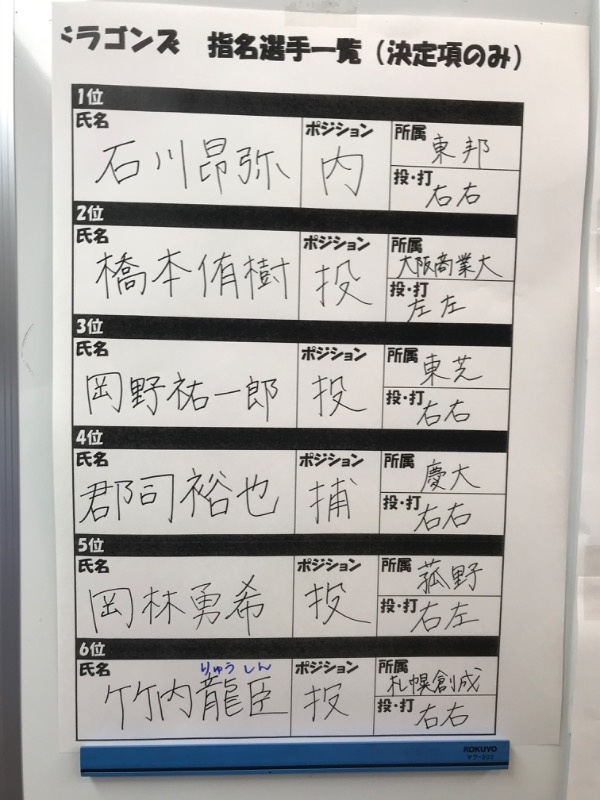 ドラゴンズ 指名選手一覧(決定項のみ)
1位
氏名 ポジション 所属
石川昂弥 内 東邦
投・打
右右
2位
氏名 ポジション 所属
橋本侑樹 投 大阪商業大
投・打
左左
3位
氏名 ポジション 所属
岡野祐一郎 投 東芝
投・打
右右
4位
氏名 ポジション 所属
郡司裕也 捕 慶大
投・打
右右
5位
氏名 ポジション 所属
岡林勇希 投 菰野
投・打
右左
6位
氏名 ポジション 所属
りゅうしん
竹内龍臣 投 札幌創成
投・打
右右
KOKUYO